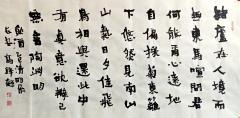 結廬在人境而
無車馬喧問君
何能爾心遠地
自偏採菊東籬
下悠然見南山
山氣日夕佳飛
鳥相與還此中
有真意欲辨已
忘言陶淵明